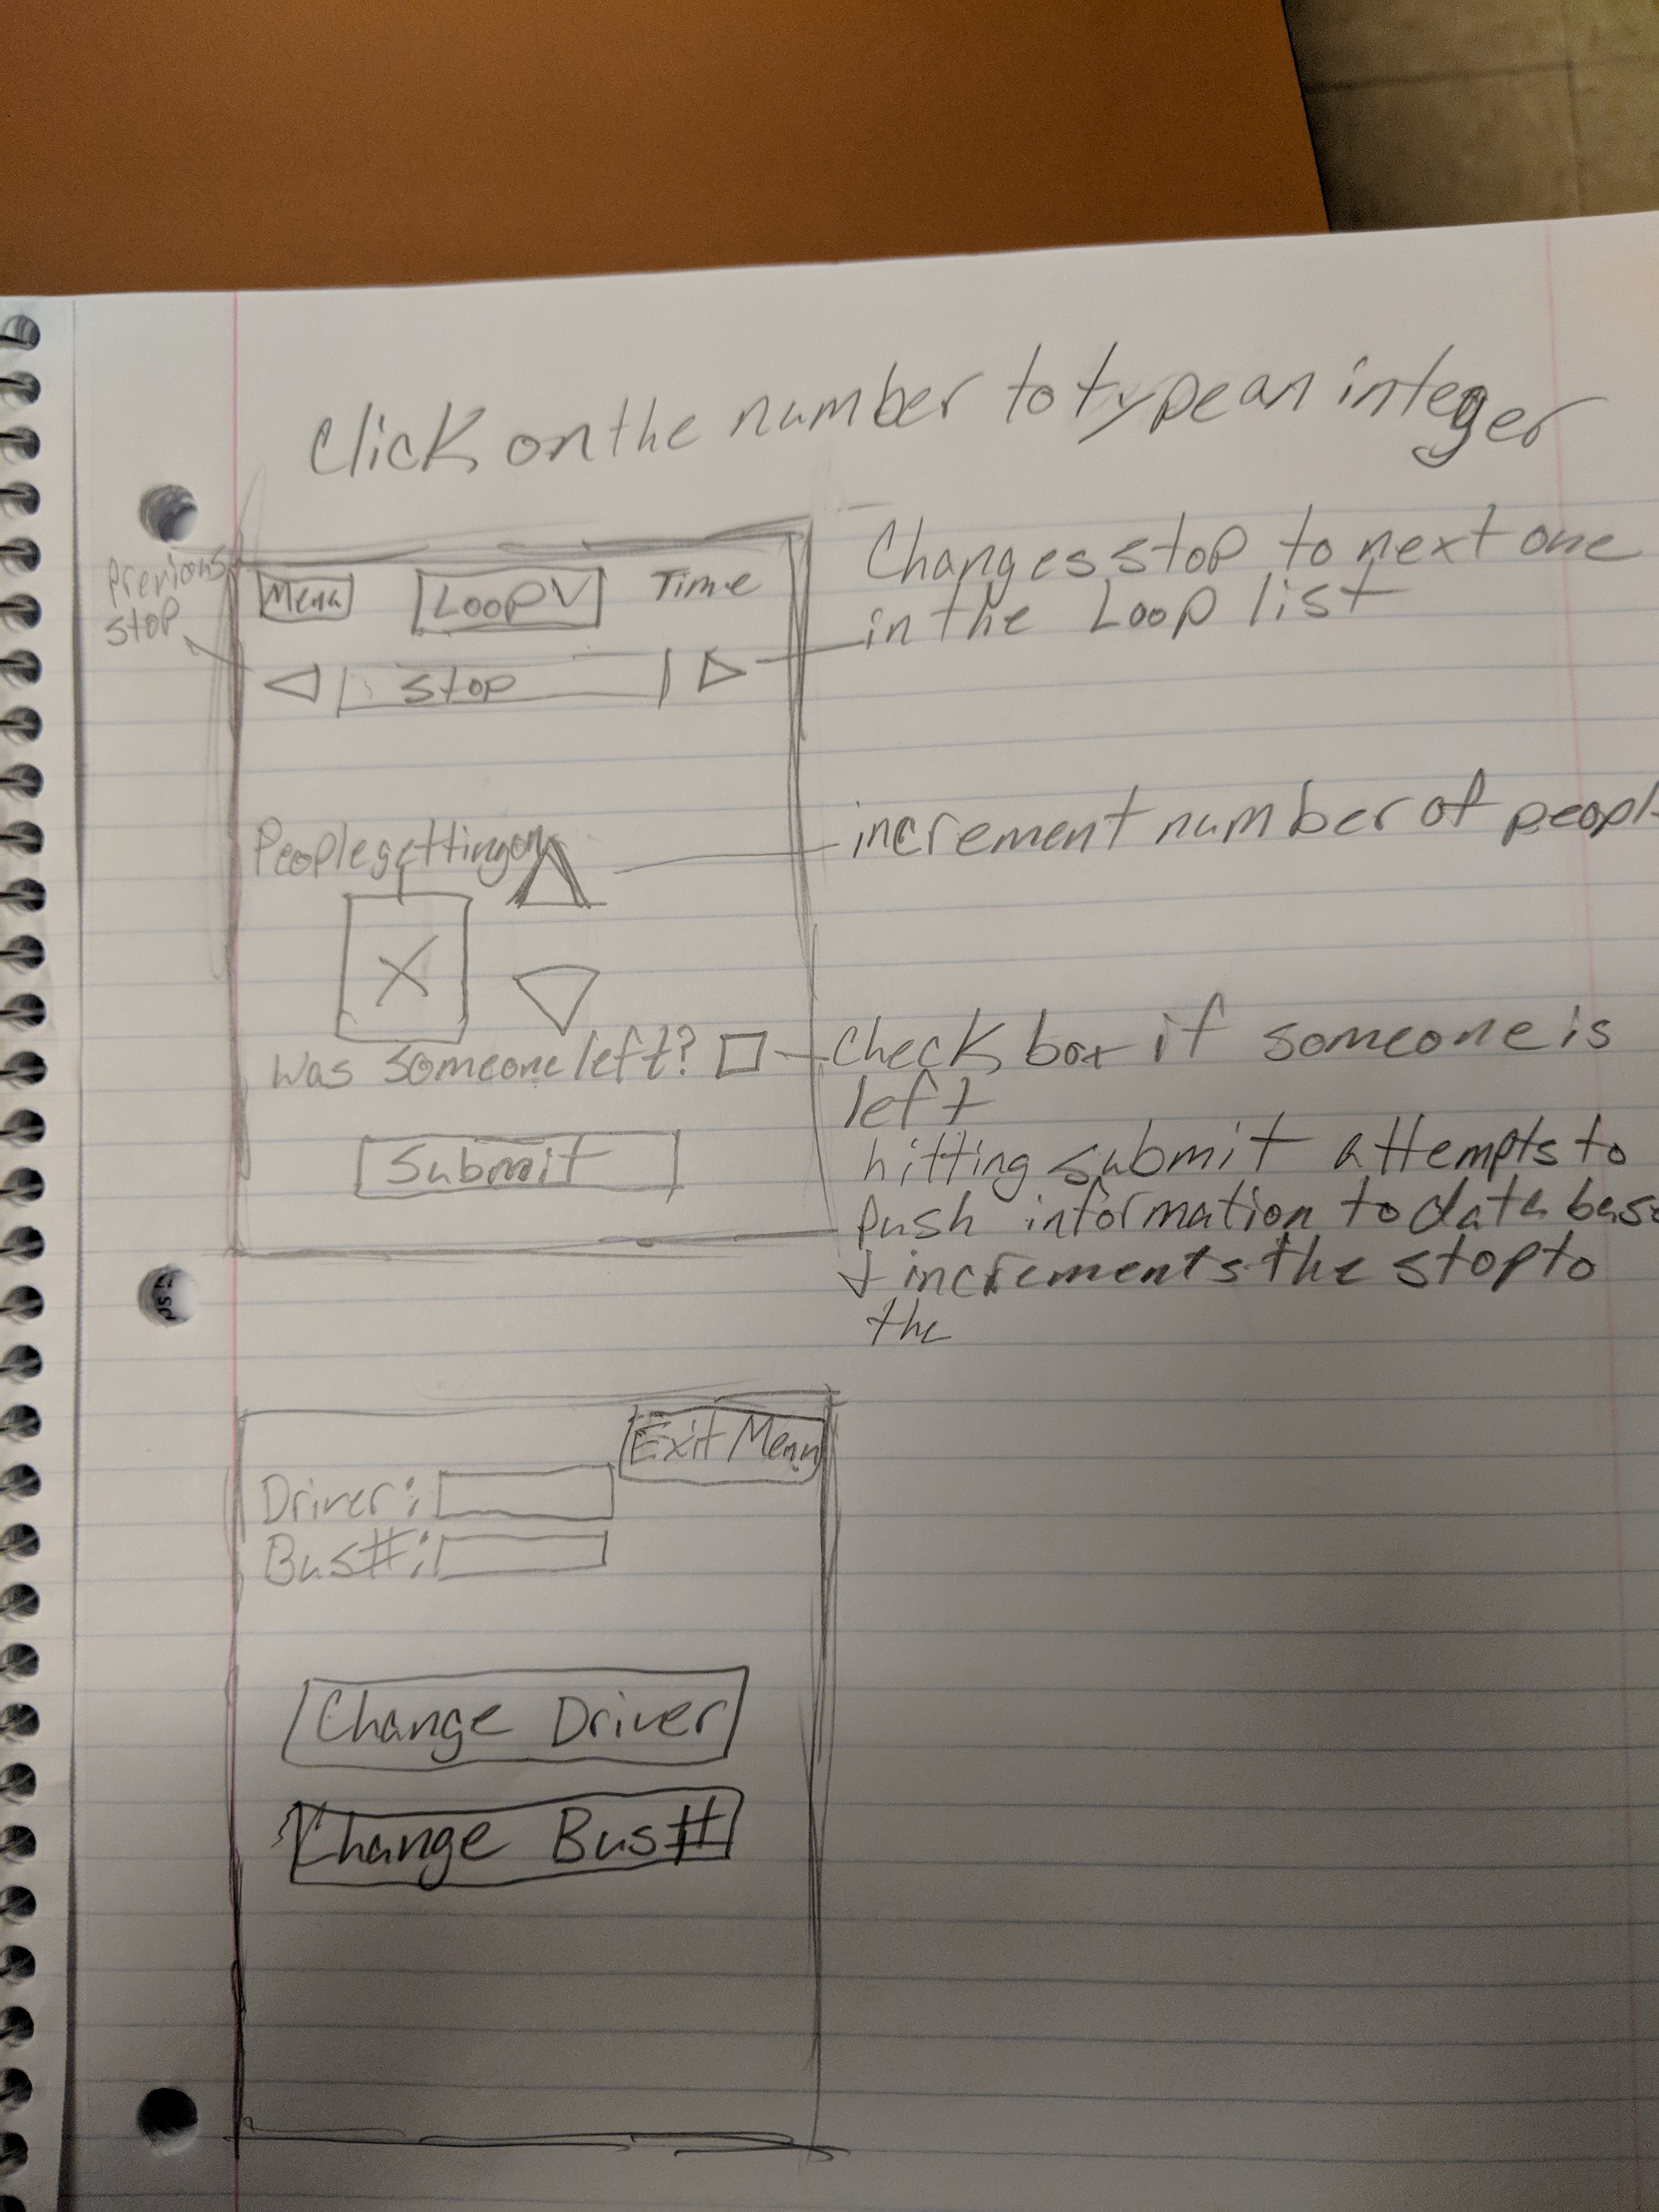 Click on the number to type an integer
Previous
stop
Menu Loop V Time
Stop
Changes stop to next one
in the Loop list
People getting on
increment number of peopl
X
Was someone left?
Check box if someone is
left
Submit
hitting submit attempts to
push information to data base
+ increments the stop to
the
Exit Menu
Driver:
Bus#:
Change Driver
Change Bus#